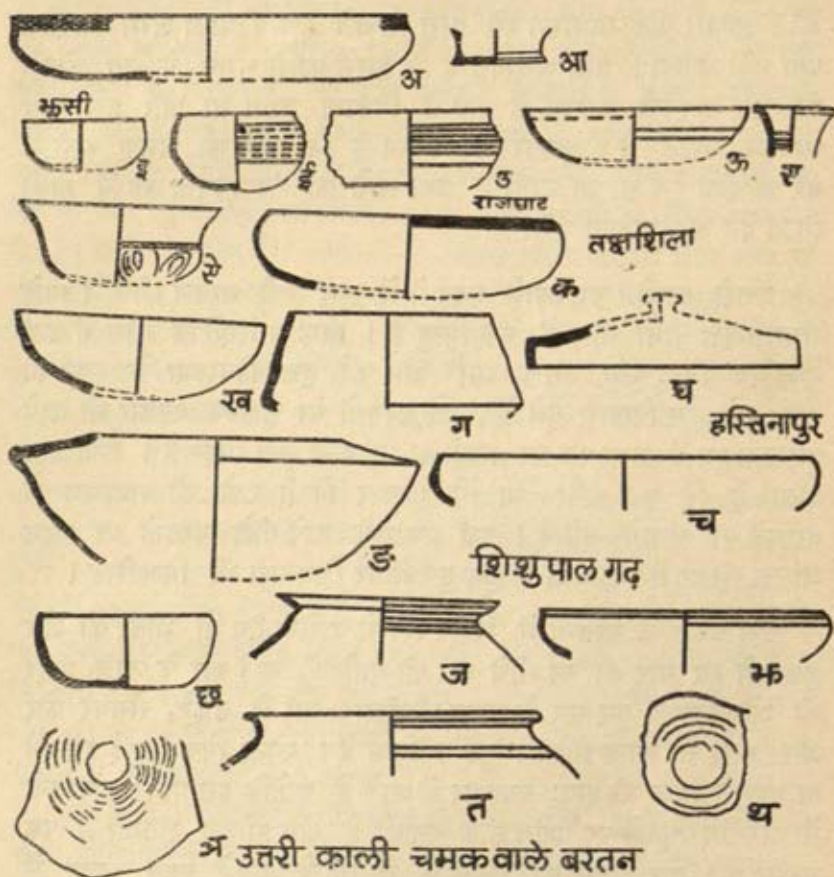 अ आ
झूसी
इ ई उ ऊ ए
राजघाट
ऐ क तक्षशिला
ख ग घ
हस्तिनापुर
ङ च
शिशुपाल गढ़
छ ज झ
त थ
ञ उत्तरी काली चमकवाले बरतन